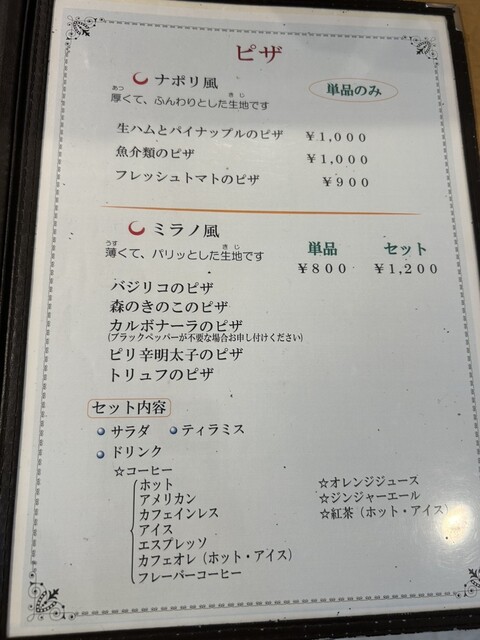 ピザ
ナポリ風
単品のみ
あつ きじ
厚くて、ふんわりとした生地です
生ハムとパイナップルのピザ ￥1,000
魚介類のピザ ￥1,000
フレッシュトマトのピザ ￥900
ミラノ風
うす きじ
薄くて、パリッとした生地です
単品 セット
￥800 ￥1,200
バジリコのピザ
森のきのこのピザ
カルボナーラのピザ
(ブラックペッパーが不要な場合お申し付けください)
ピリ辛明太子のピザ
トリュフのピザ
セット内容
サラダ ティラミス
ドリンク
☆コーヒー
ホット
アメリカン
カフェインレス
アイス
エスプレッソ
カフェオレ（ホット・アイス）
フレーバーコーヒー
☆オレンジジュース
☆ジンジャーエール
☆紅茶（ホット・アイス）